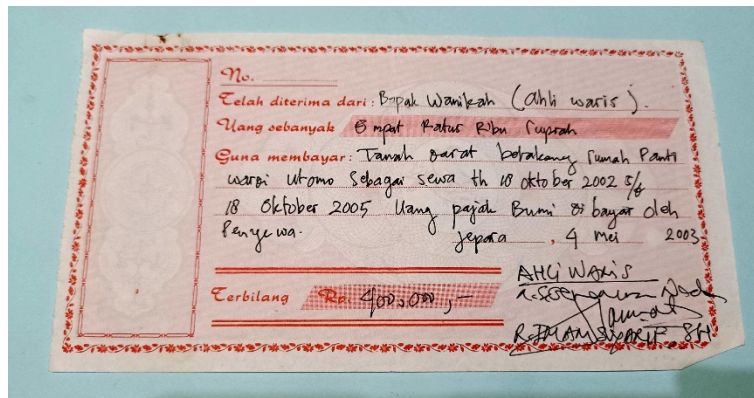 No.
Telah diterima dari : Bapak Wanikah (ahli waris).
Uang sebanyak Empat Ratus Ribu rupiah
Guna membayar : Tanah darat belakang rumah Panti
warsi utomo Sebagai sewa th 18 oktober 2002 s/d
18 Oktober 2005 Uang pajak Bumi di bayar oleh
Penyewa.
Jepara, 4 Mei 2003
AHLI WARIS
Terbilang Rp. 400.000,-
R. IMAM SYARIF SH